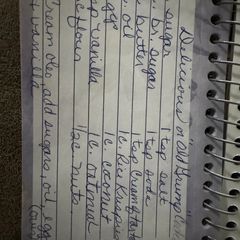 Delicious "Old Grump"
sugar 1 tsp salt
br. sugar 1 tsp soda
butter 1 tsp Cream/tarta
c. oil 1 c. Rice Krispies
egg 1 c. coconut
sp vanilla 1 c. oatmeal
c flour 1/2 c nuts.
Cream oleo, add sugars, oil, egg
+ vanilla